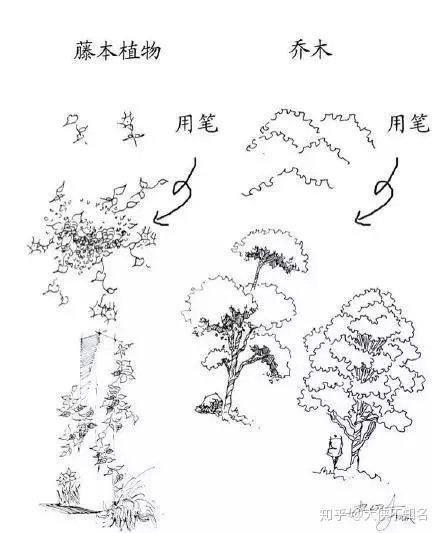 藤本植物
乔木
用笔
用笔
知乎 @大侠不知名